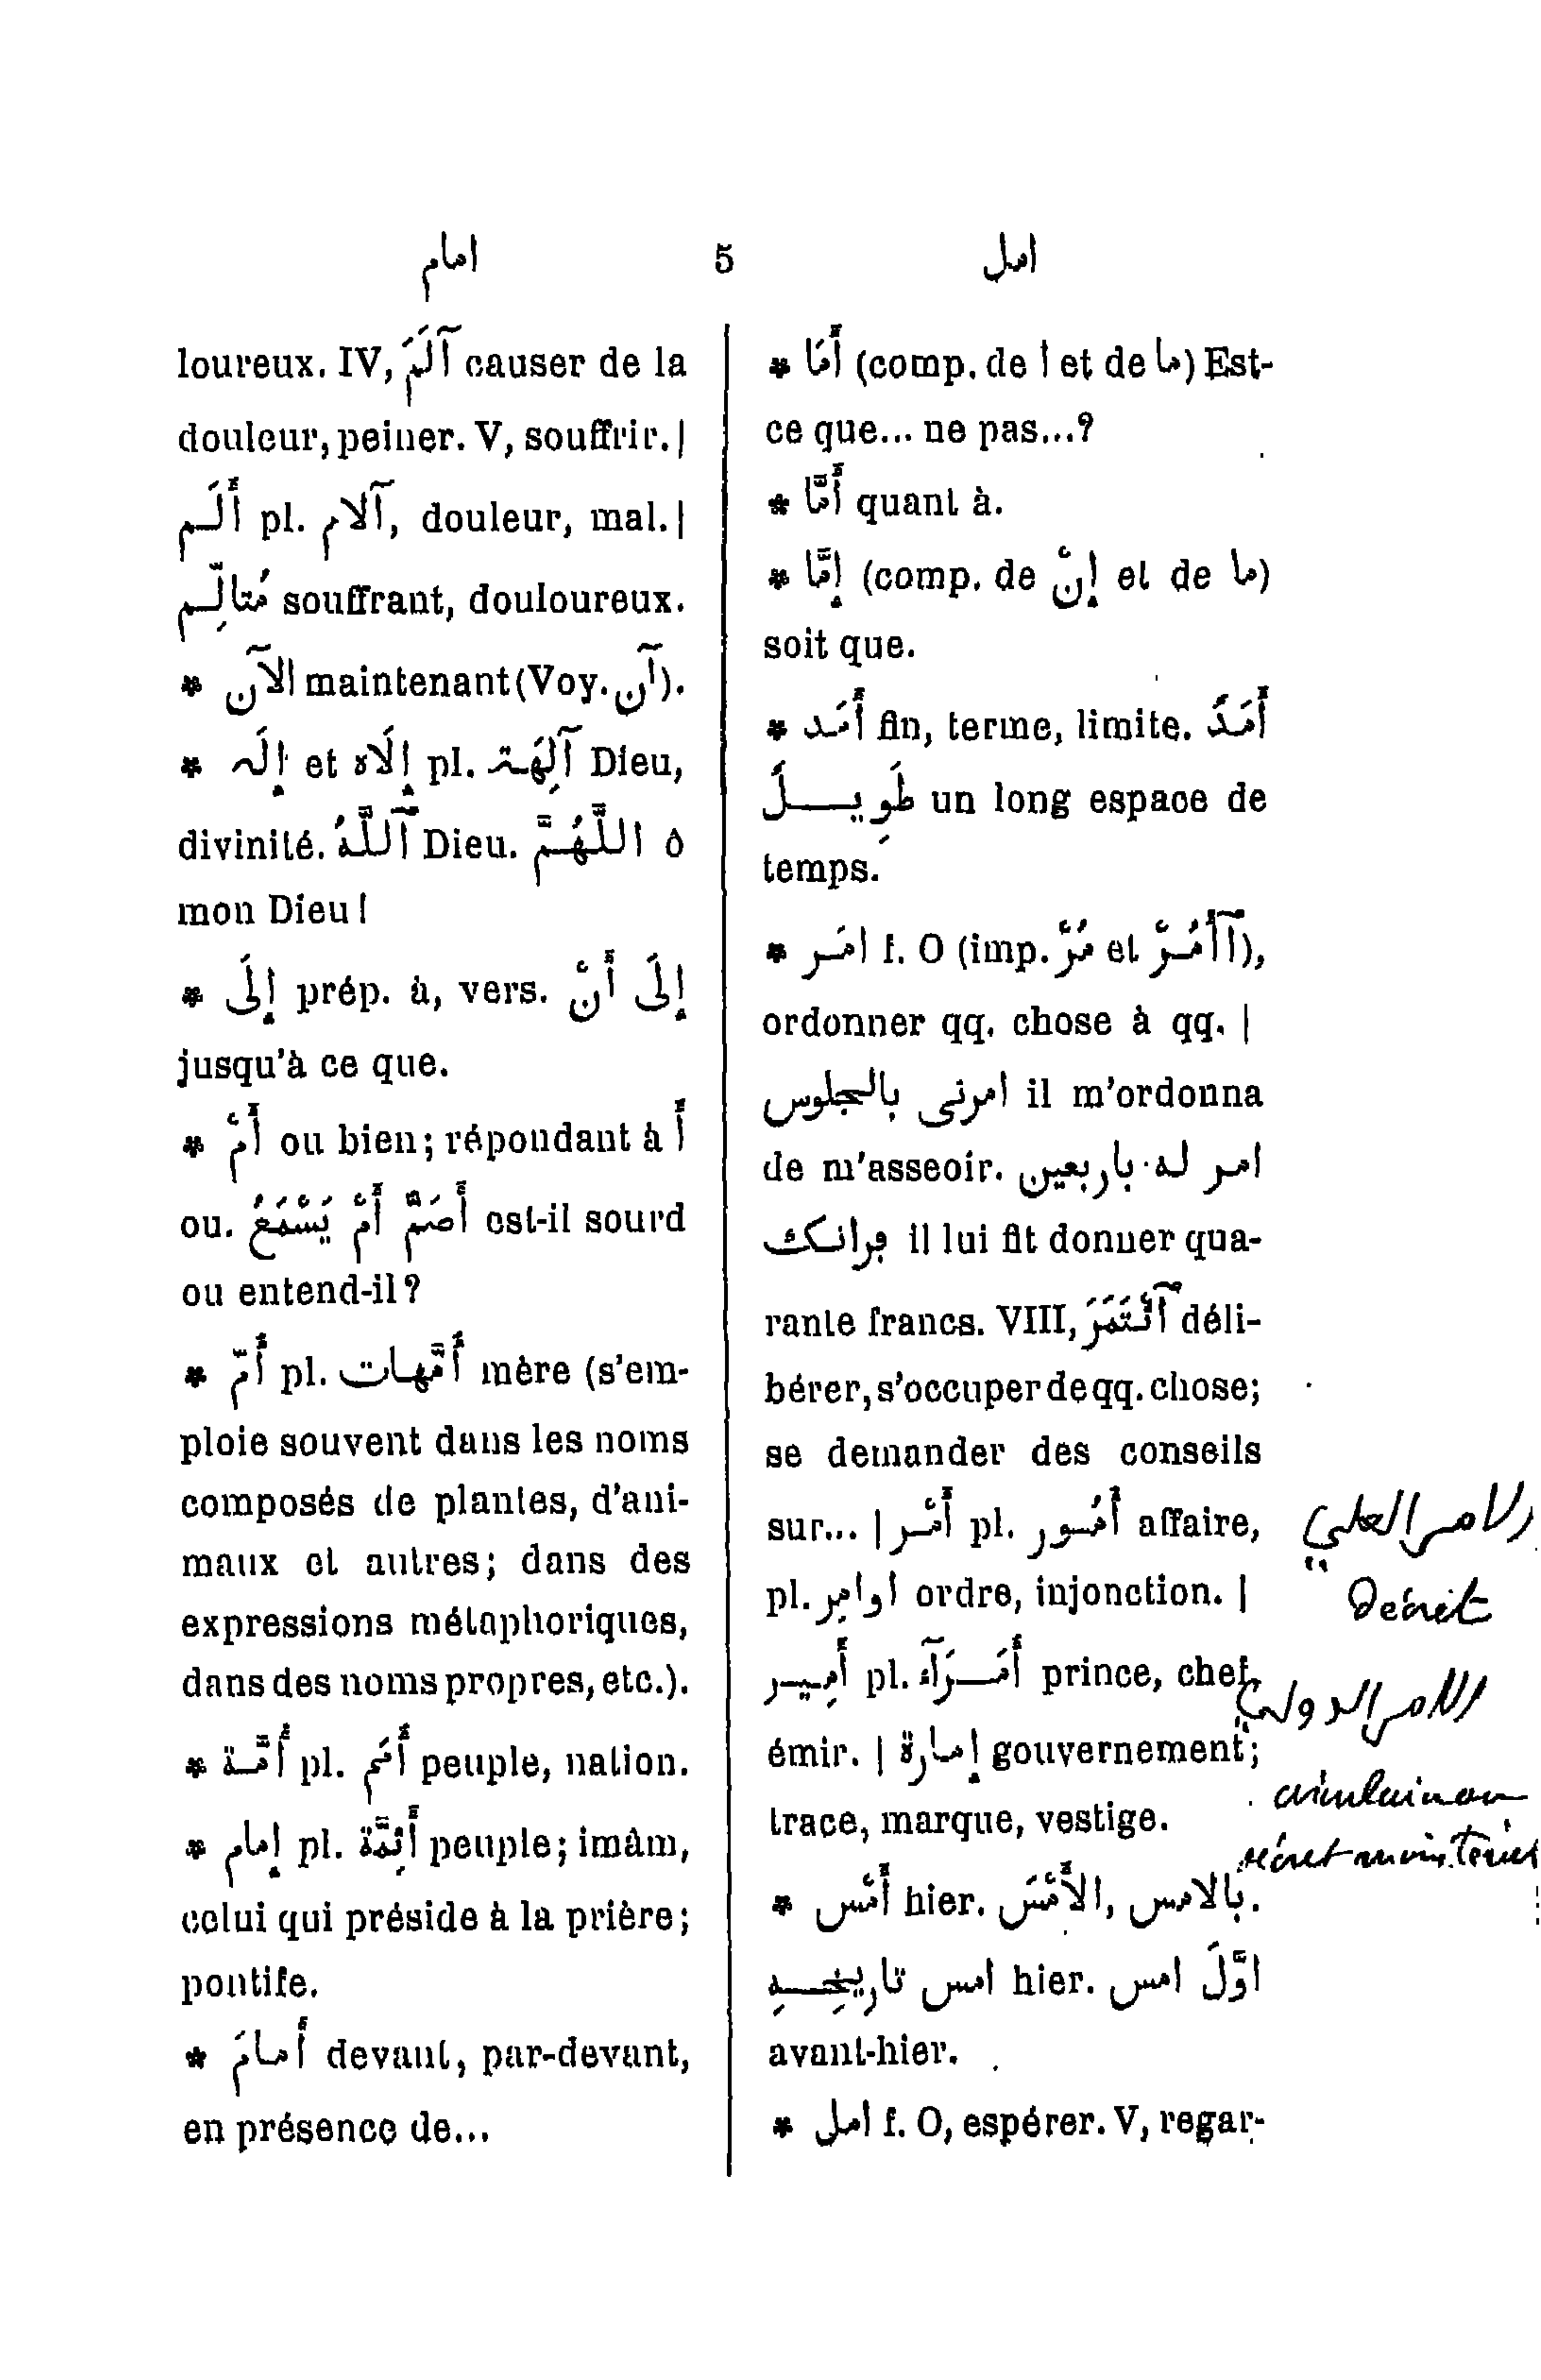 امام 5 امل
loureux. IV, آلَمَ causer de la
douleur, peiner. V, souffrir. |
أَلَم pl. آلام, douleur, mal. |
مُتالِّم souffrant, douloureux.
* الآن maintenant (Voy. آن).
* إِلَه et إِلَاه pl. آلِهَة Dieu,
divinité. آللَّهُ Dieu. اللَّهُمَّ ô
mon Dieu !
* إِلَى prép. à, vers. إِلَى أَنْ
jusqu'à ce que.
* أَمْ ou bien; répondant à أَ
ou. أَصَمٌّ أَمْ يَسْمَعُ est-il sourd
ou entend-il ?
* أُمّ pl. أُمَّهات mère (s'em-
ploie souvent dans les noms
composés de plantes, d'ani-
maux et autres; dans des
expressions métaphoriques,
dans des noms propres, etc.).
* أُمَّة pl. أُمَم peuple, nation.
* إِمام pl. أَئِمَّة peuple; imâm,
celui qui préside à la prière;
pontife.
* أَمامَ devant, par-devant,
en présence de...
* أَمَا (comp. de أ et de ما) Est-
ce que... ne pas...?
* أَمَّا quant à.
* إِمَّا (comp. de إِنْ et de ما)
soit que.
* أَمَد fin, terme, limite. أَمَدٌ
طَوِيلٌ un long espace de
temps.
* امَر f. O (imp. مُرْ et آأْمُرْ),
ordonner qq. chose à qq. |
امرنى بالجلوس il m'ordonna
de m'asseoir. امر له باربعين
فرانك il lui fit donner qua-
rante francs. VIII, آئْتَمَرَ déli-
bérer, s'occuper de qq. chose;
se demander des conseils
sur... | أَمْر pl. أُمُور affaire,
pl. اوامِر ordre, injonction. |
أَمِير pl. أُمَرَآء prince, chef,
émir. | إِمارة gouvernement;
trace, marque, vestige.
* أَمْس hier. الأَمْسَ, بالامس.
امس تاريخِهِ hier. اوَّلَ امس
avant-hier.
* امل f. O, espérer. V, regar-
الامر العلي
Décret
الامر الدولي